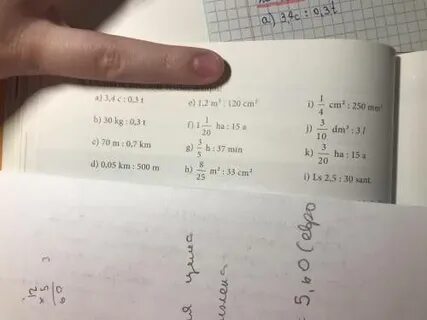 a) 34c : 0,3 t
a) 3,4 c : 0,3 t
b) 30 kg : 0,3 t
c) 70 m : 0,7 km
d) 0,05 km : 500 m
e) 1,2 m³ : 120 cm³
f) 1 1/20 ha : 15 a
g) 3/5 h : 37 min
h) 8/25 m² : 33 cm²
i) 1/4 cm² : 250 mm²
j) 3/10 dm³ : 3 l
k) 3/20 ha : 15 a
i) Ls 2,5 : 30 sant
цена
= 5,60 (евро
12
× 5
60
3